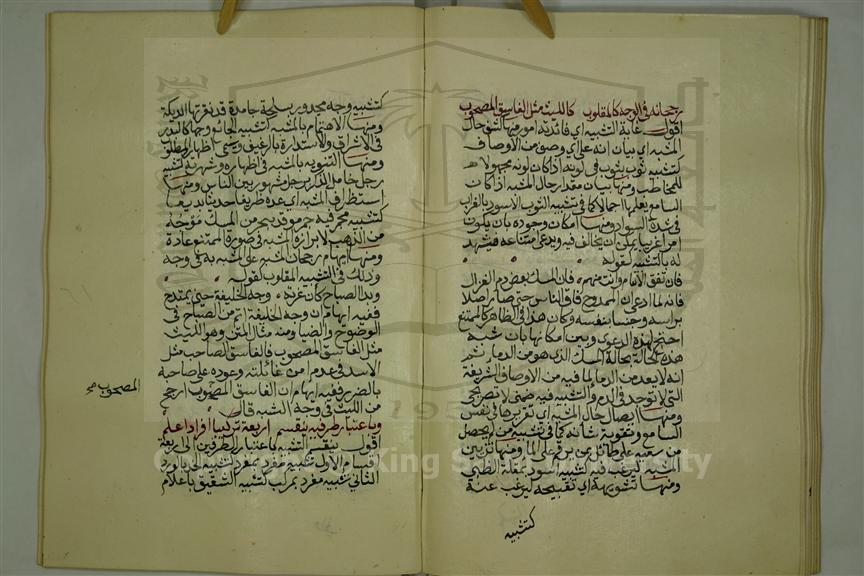 رجحانه في الوجه كالمقلوب كالليث مثل الفاسق المصحوب
اقول غاية التشبيه اي فائدته امور منها كشف حال
المشبه اي بيان انه على اي وصف من الاوصاف
كتشبيه ثوب بثوب في لونه اذا كان لونه مجهولا
للمخاطب ومنها بيان مقدار حال المشبه اذا كان
السامع يعلمها اجمالا كما في تشبيه الثوب الاسود بالغراب
في شدة السواد ومنها امكان وجوده بان يكون
امرا غريبا يمكن ان يخالف فيه ويدعى امتناعه فيشهد
له بالتشبيه كقوله
فان تفق الانام وانت منهم فان المسك بعض دم الغزال
فانه لما ادعى ان الممدوح فاق الناس حتى صار اصلا
براسه وجنسا بنفسه وكان هذا في الظاهر كالممتنع
احتج لهذه الدعوى وبين امكانها بان شبه
هذه الحالة بحالة المسك الذي هو من الدماء ثم
انه لا يعد من الدماء لما فيه من الاوصاف الشريفة
التي لا توجد في الدم والتشبيه فيه ضمني لا تصريحي
ومنها ايصال حال المشبه اي تقريرها في نفس
السامع وتقوية شانه كما في تشبيه من لا يحصل
من سعيه على طائل بمن يرقم على الماء ومنها تزيين
المشبه ليرغب فيه كتشبيه اسود بمقلة الظبي
ومنها تشويهه اي تقبيحه ليرغب عنه
كتشبيه
كتشبيه وجه مجدور بسلحة جامدة قد نقرتها الديكة
ومنها الاهتمام بالمشبه به كتشبيه الجائع وجها كالبدر
في الاشراق والاستدارة بالرغيف ويسمى اظهار المطلوب
ومنها التنويه بالمشبه في اظهاره وشهرته كتشبيه
رجل خامل الذكر برجل مشهور بين الناس ومنها
استظراف المشبه اي عده ظريفا حديثا بديعا
كتشبيه فحم فيه جمر موقد ببحر من المسك موجه
من الذهب لابرازه المشبه في صورة الممتنع عادة
ومنها ايهام رجحان المشبه على المشبه به في وجه
وذلك في التشبيه المقلوب كقوله
وبدا الصباح كان غرته وجه الخليفة حين يمتدح
ففيه ايهام ان وجه الخليفة اتم من الصباح في
الوضوح والضياء ومنه مثال المتن وهو الليث
مثل الفاسق المصحوب فالفاسق الصاحب مثل
الاسد في عدم امن غائلته وعوده على صاحبه
بالضرر ففيه ايهام ان الفاسق المصحوب ارجح
من الليث في وجه الشبه قال
وباعتبار طرفيه ينقسم اربعة تركيبا افرادا علم
اقول ينقسم التشبيه باعتبار الطرفين الى اربعة
اقسام الاول تشبيه مفرد بمفرد كتشبيه الخد بالورد
الثاني تشبيه مفرد بمركب كتشبيه الشقيق باعلام
المصحوب صح
King S